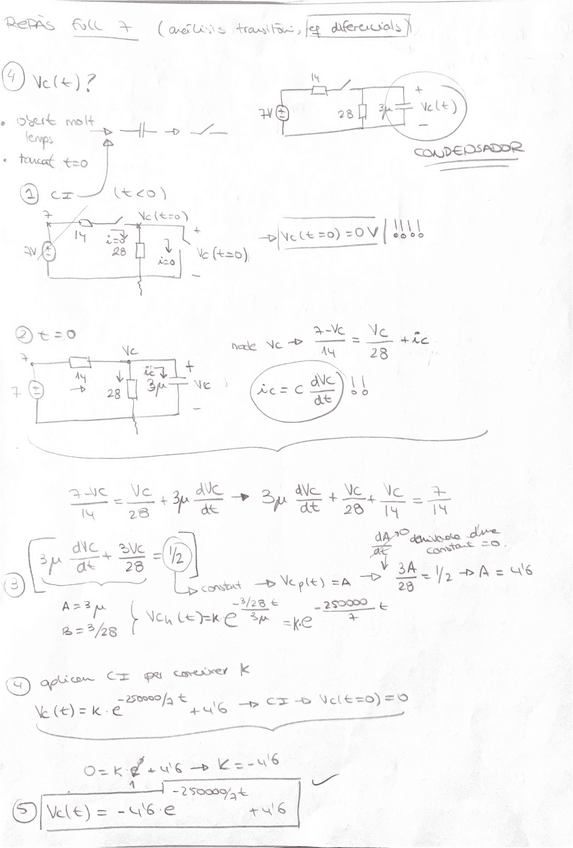 REPÀS FULL 7 (anàlisis transitòri, eq diferencials)
④ Vc(t)?
14
7V
28
3μ
+
Vc(t)
−
CONDENSADOR
• obert molt temps
• tancat t=0
① CI (t<0)
7
14
i=0
28
7V
Vc(t=0)
i=0
+
Vc(t=0)
−
→ Vc(t=0) = 0V !!!!
② t=0
7
14
Vc
7
28
ic
3μ
+
Vc
−
node Vc → (7-Vc)/14 = Vc/28 + ic
ic = C dVc/dt !!
(7-Vc)/14 = Vc/28 + 3μ dVc/dt → 3μ dVc/dt + Vc/28 + Vc/14 = 7/14
③ [3μ dVc/dt + 3Vc/28 = 1/2]
dA/dt → 0 derivada d'una constant = 0.
→ constant → Vcp(t) = A → 3A/28 = 1/2 → A = 4'6
A = 3μ
B = 3/28
Vch(t) = K·e^(-3/28 / 3μ t) = K·e^(-250000/7 t)
④ apliquem CI per coneixer K
Vc(t) = K·e^(-250000/7 t) + 4'6 → CI → Vc(t=0) = 0
0 = K·e^0 + 4'6 → K = -4'6
1
⑤ Vc(t) = -4'6·e^(-250000/7 t) + 4'6 ✓